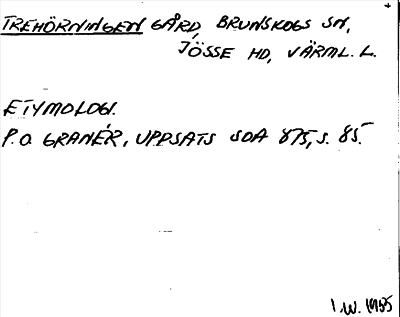 TREHÖRNINGEN GÅRD, BRUNSKOGS SN,
JÖSSE HD, VÄRML. L.
ETYMOLOGI.
P.O. GRANÉR, UPPSATS SOA 875, S. 85.
I.W. 1955